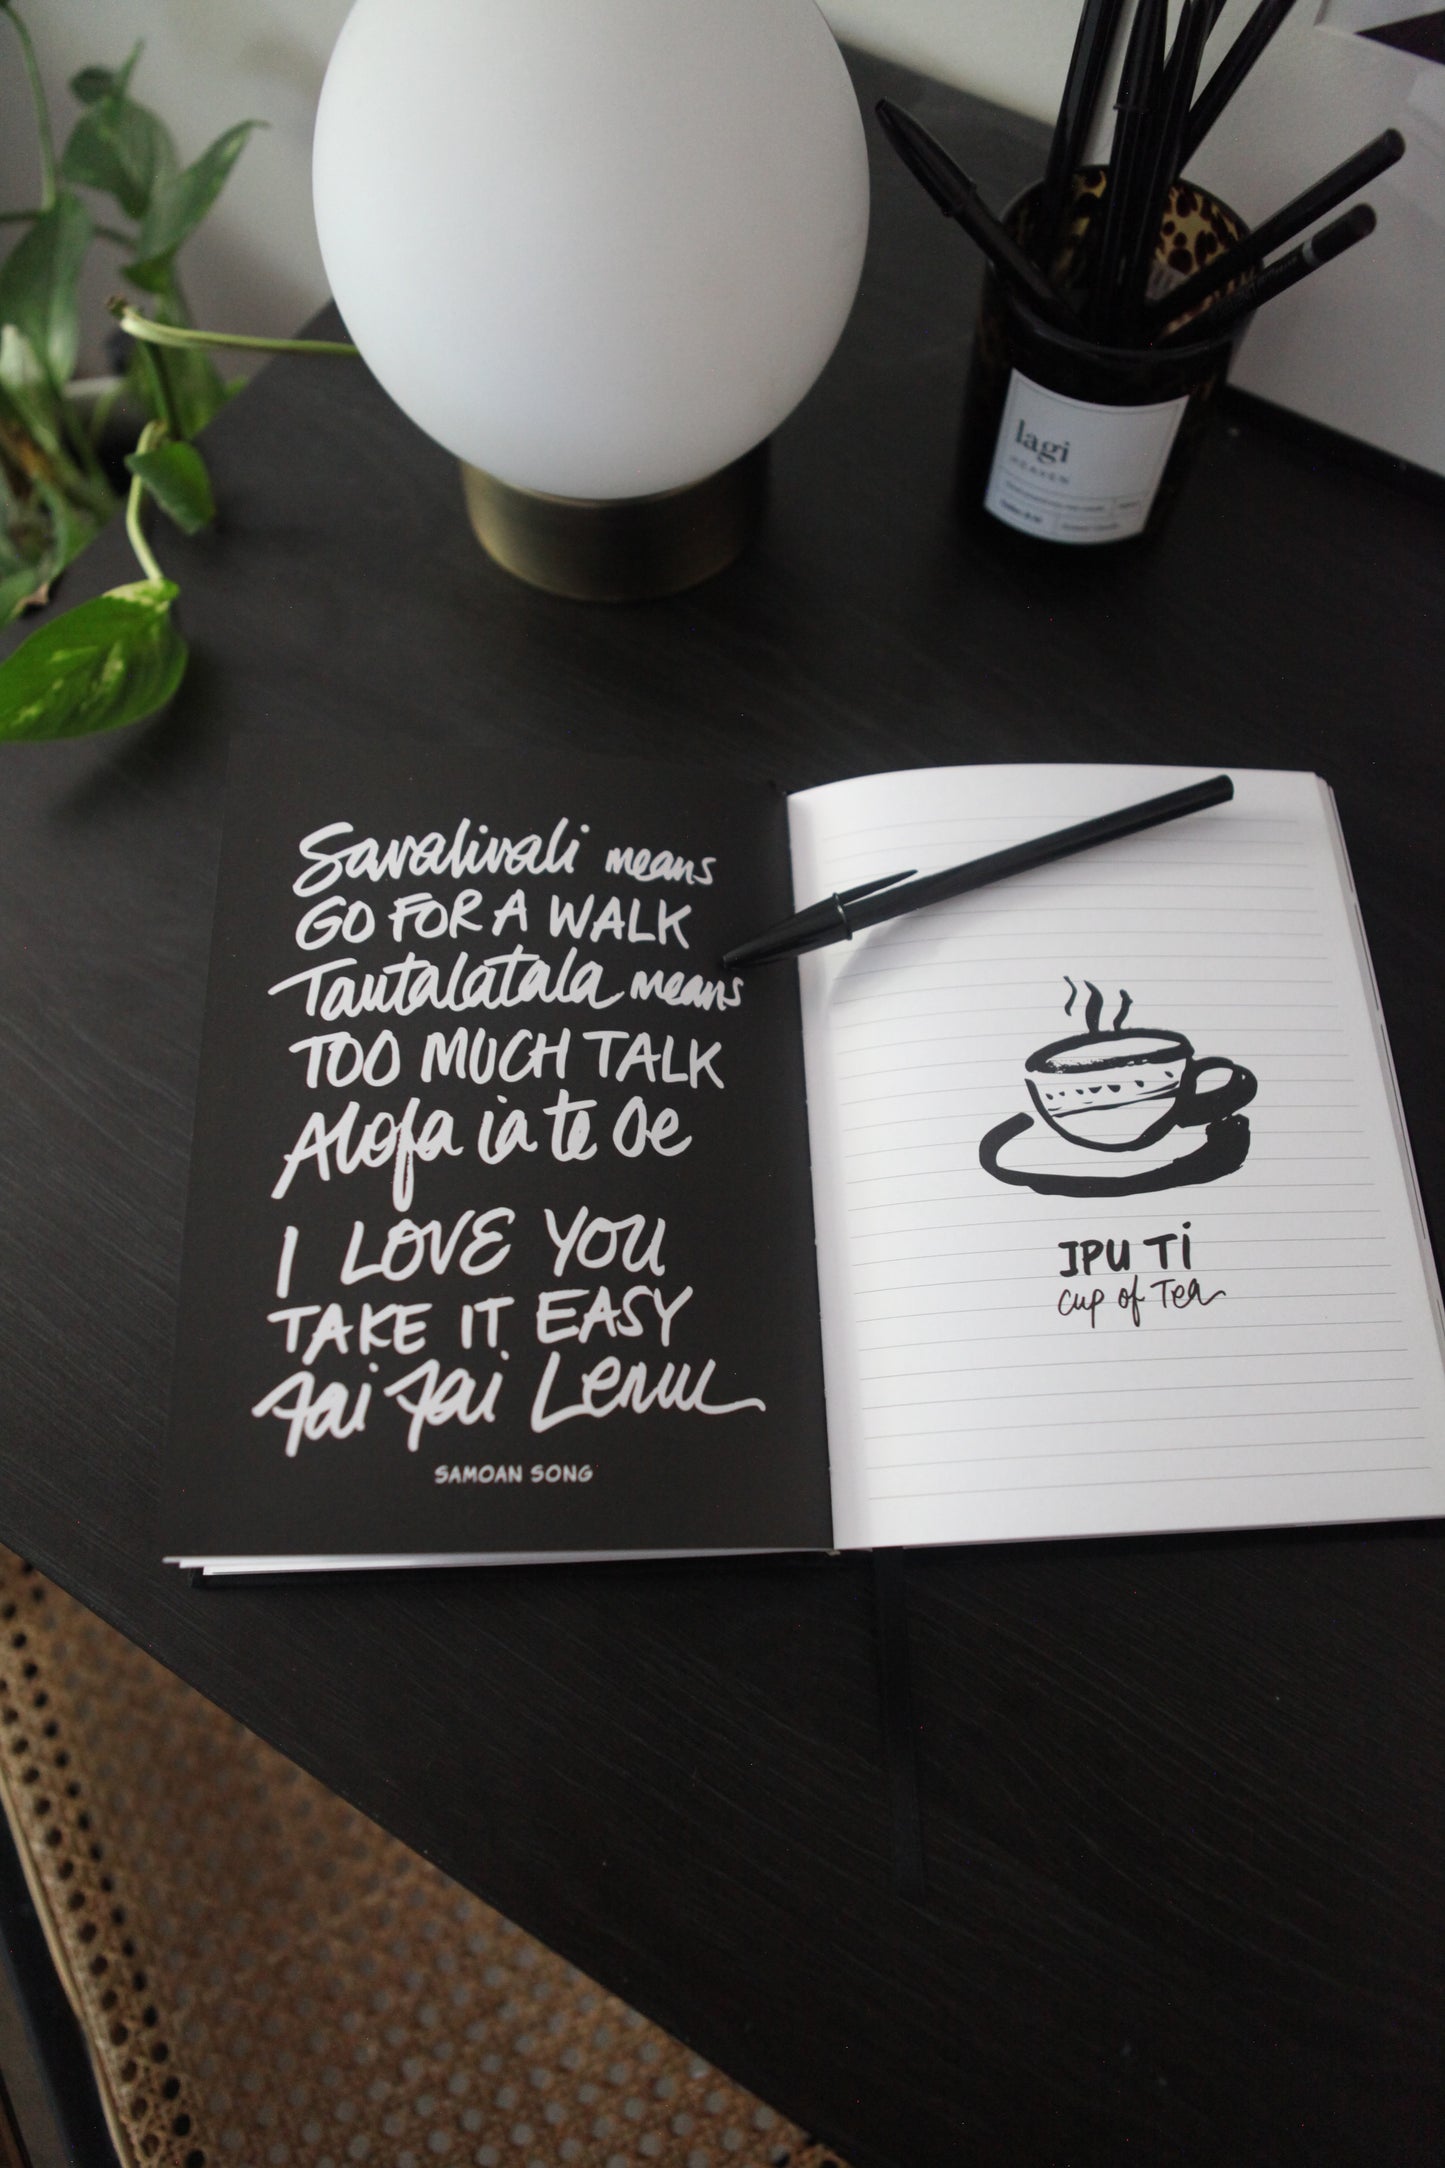 lagi
HEAVEN
Savalivali means
GO FOR A WALK
Tautalatala means
TOO MUCH TALK
Alofa ia te Oe
I LOVE YOU
TAKE IT EASY
Fai Fai Lemu
SAMOAN SONG
IPU Ti
cup of Tea